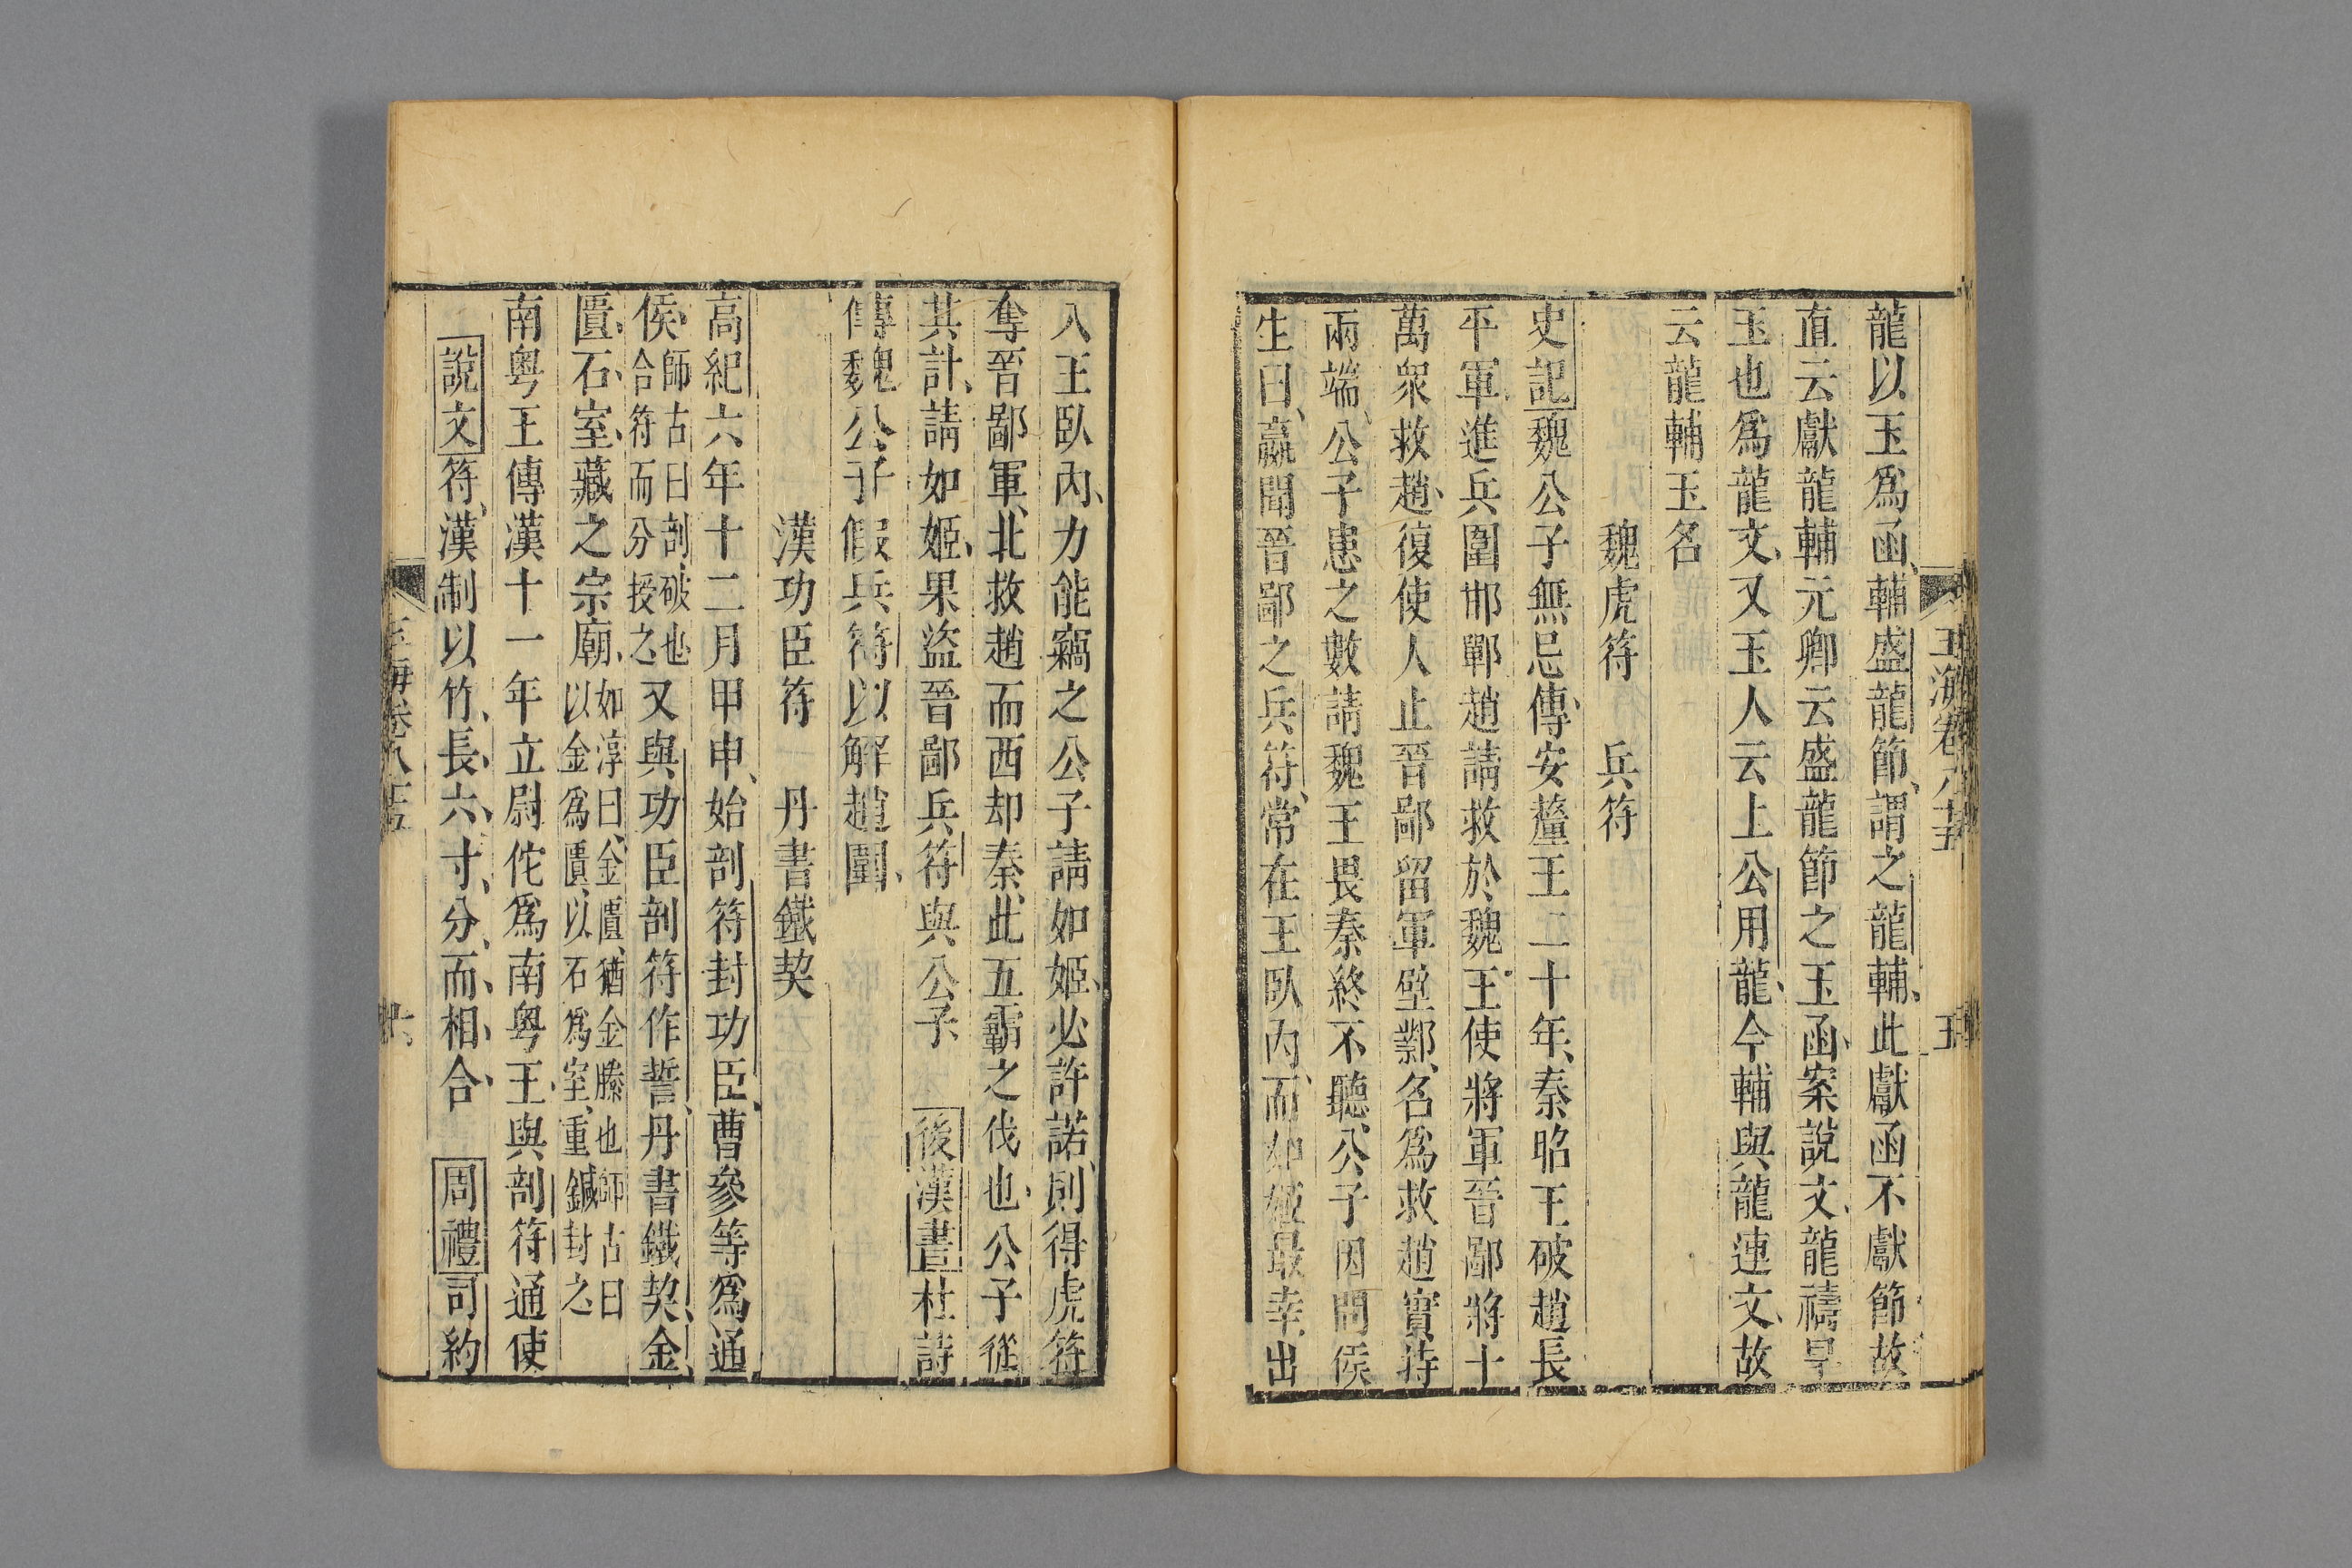 龍以玉爲函輔盛龍節謂之龍輔此獻函不獻節故
直云獻龍輔元卿云盛龍節之玉函案說文龍禱旱
玉也爲龍文又玉人云上公用龍今輔與龍連文故
云龍輔玉名
魏虎符 兵符
史記魏公子無忌傳安釐王二十年秦昭王破趙長
平軍進兵圍邯鄲趙請救於魏王使將軍晉鄙將十
萬衆救趙復使人止晉鄙留軍壁鄴名爲救趙實持
兩端公子患之數請魏王畏秦終不聽公子因問侯
生曰嬴聞晉鄙之兵符常在王臥內而如姬最幸出
入王臥內力能竊之公子請如姬必許諾則得虎符
奪晉鄙軍北救趙而西却秦此五霸之伐也公子從
其計請如姬果盜晉鄙兵符與公子 後漢書杜詩
傳魏公子假兵符以解趙圍
漢功臣符 丹書鐵契
高紀六年十二月甲申始剖符封功臣曹參等爲通
侯師古曰剖破也合符而分授之又與功臣剖符作誓丹書鐵契金
匱石室藏之宗廟如淳曰金匱猶金縢也師古曰以金爲匱以石爲室重鍼封之
南粵王傳漢十一年立尉佗爲南粵王與剖符通使
說文符漢制以竹長六寸分而相合 周禮司約